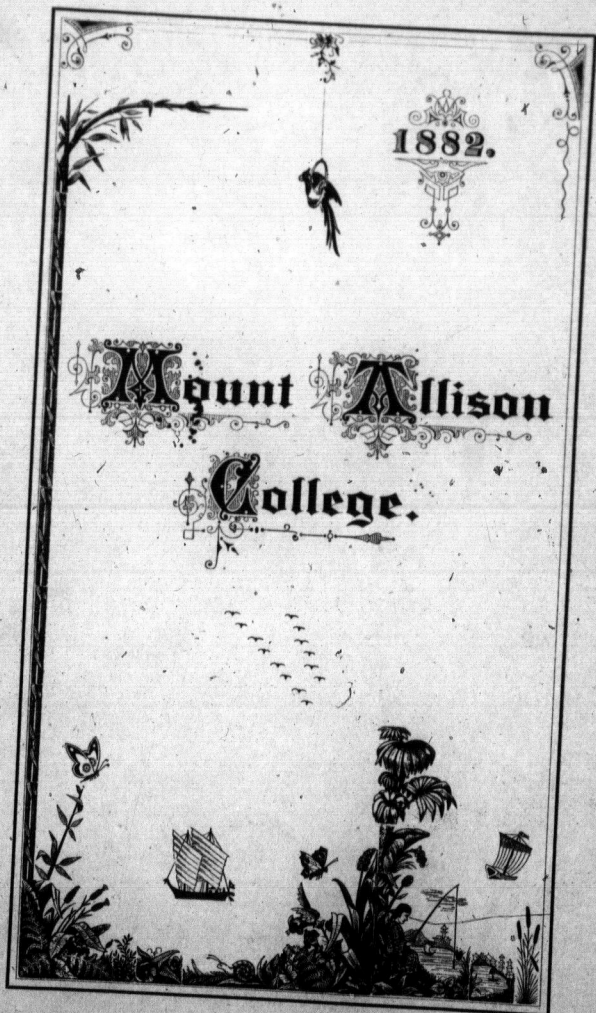 1882.
Mount Allison
College.